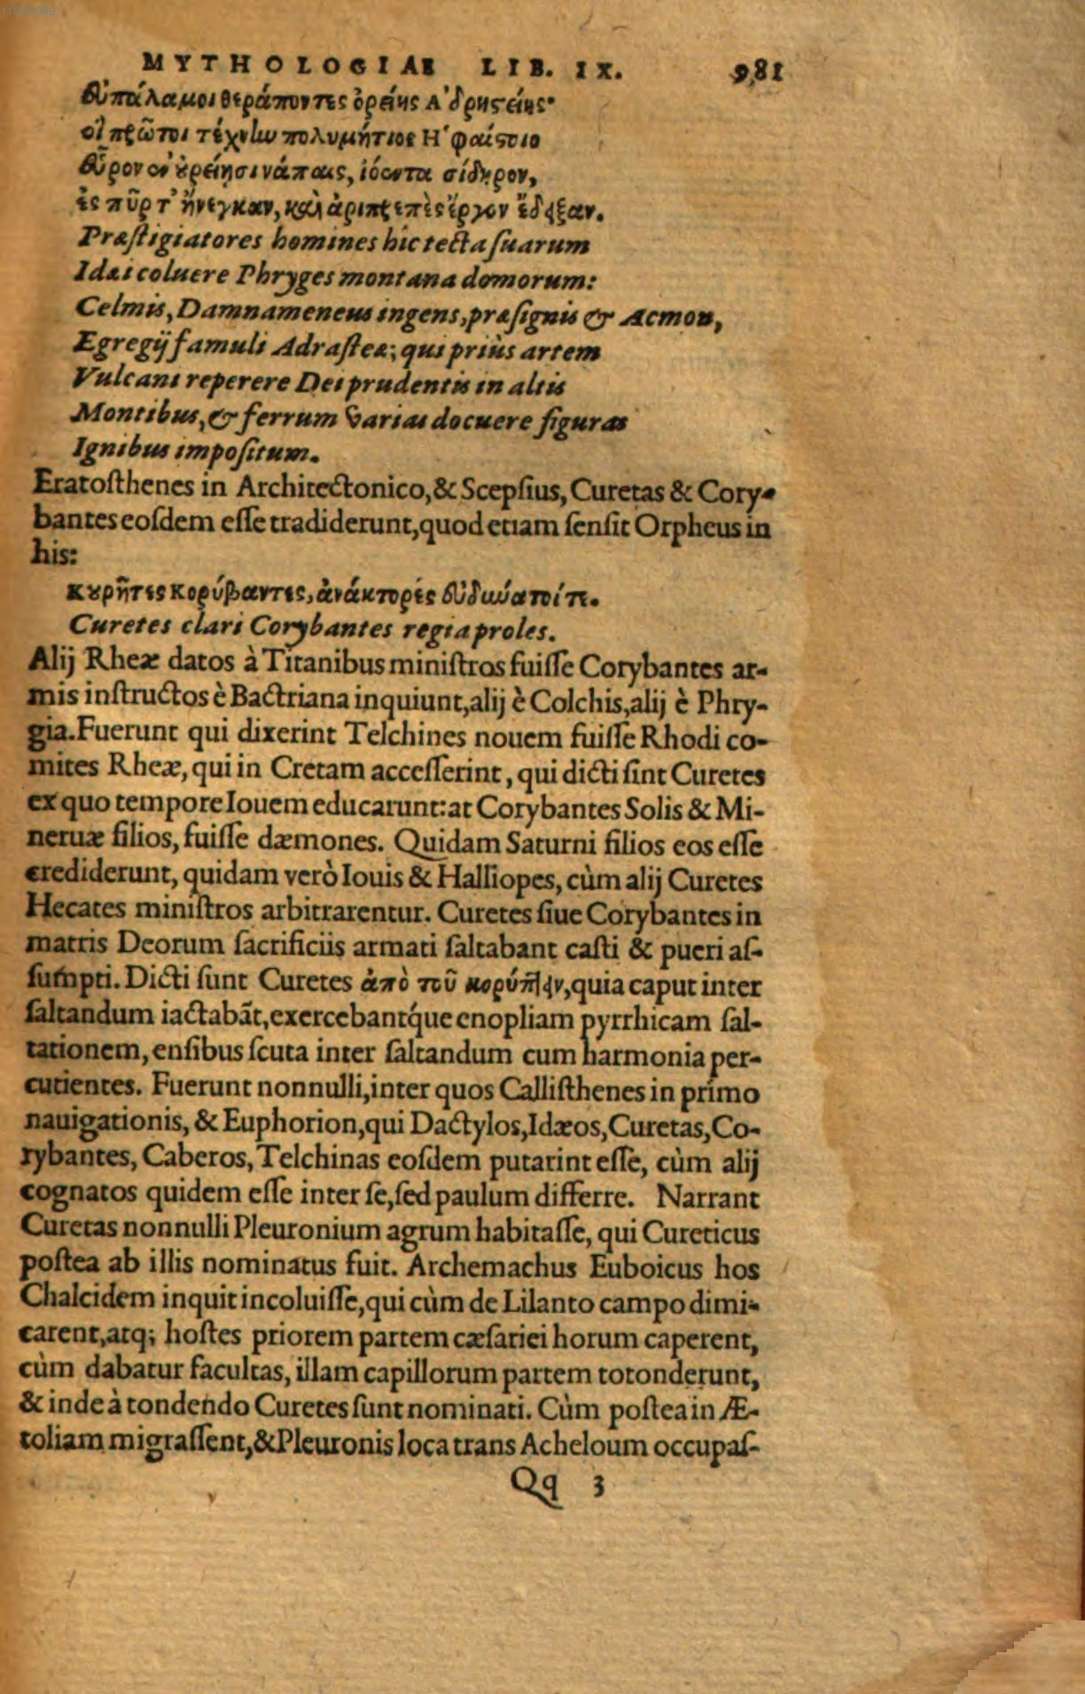 MYTHOLOGIAE LIB. IX. 981
εὐπάλαμοι θεράποντες ὀρείης Ἀδρηστείης·
οἳ πρῶτοι τέχνην πολυμήτιος Ἡφαίστοιο
εὗρον ἐν οὐρείῃσι νάπαις, ἰόεντα σίδηρον,
ἐς πῦρ τ' ἤνεγκαν, καὶ ἀριπρεπὲς ἔργον ἔδειξαν.
Præstigiatores homines hic tecta suarum
Idæi coluere Phryges montana domorum:
Celmis, Damnameneus ingens, præsignis & Acmon,
Egregij famuli Adrasteæ; qui priùs artem
Vulcani reperere Dei prudentis in altis
Montibus, & ferrum varias docuere figuras
Ignibus impositum.
Eratosthenes in Architectonico, & Scepsius, Curetas & Cory-
bantes eosdem esse tradiderunt, quod etiam sensit Orpheus in
his:
Κυρῆτες Κορύβαντες, ἀνάκτορές
Curetes clari Corybantes regia proles.
Alij Rheæ datos à Titanibus ministros fuisse Corybantes ar-
mis instructos è Bactriana inquiunt, alij è Colchis, alij è Phry-
gia. Fuerunt qui dixerint Telchines nouem fuisse Rhodi co-
mites Rheæ, qui in Cretam accesserint, qui dicti sint Curetes
ex quo tempore Iouem educarunt: at Corybantes Solis & Mi-
neruæ filios, fuisse dæmones. Quidam Saturni filios eos esse
crediderunt, quidam verò Iouis & Halliopes, cùm alij Curetes
Hecates ministros arbitrarentur. Curetes siue Corybantes in
matris Deorum sacrificiis armati saltabant casti & pueri as-
sumpti. Dicti sunt Curetes ἀπὸ τοῦ κορύπτειν, quia caput inter
saltandum iactabāt, exercebantq́ue enopliam pyrrhicam sal-
tationem, ensibus scuta inter saltandum cum harmonia per-
cutientes. Fuerunt nonnulli, inter quos Callisthenes in primo
nauigationis, & Euphorion, qui Dactylos, Idæos, Curetas, Co-
rybantes, Caberos, Telchinas eosdem putarint esse, cùm alij
cognatos quidem esse inter se, sed paulum differre. Narrant
Curetas nonnulli Pleuronium agrum habitasse, qui Cureticus
postea ab illis nominatus fuit. Archemachus Euboicus hos
Chalcidem inquit incoluisse, qui cùm de Lilanto campo dimi-
carent, atq; hostes priorem partem cæsariei horum caperent,
cùm dabatur facultas, illam capillorum partem totonderunt,
& inde à tondendo Curetes sunt nominati. Cùm postea in Æ-
toliam migrassent, & Pleuronis loca trans Acheloum occupas-
Qq 3